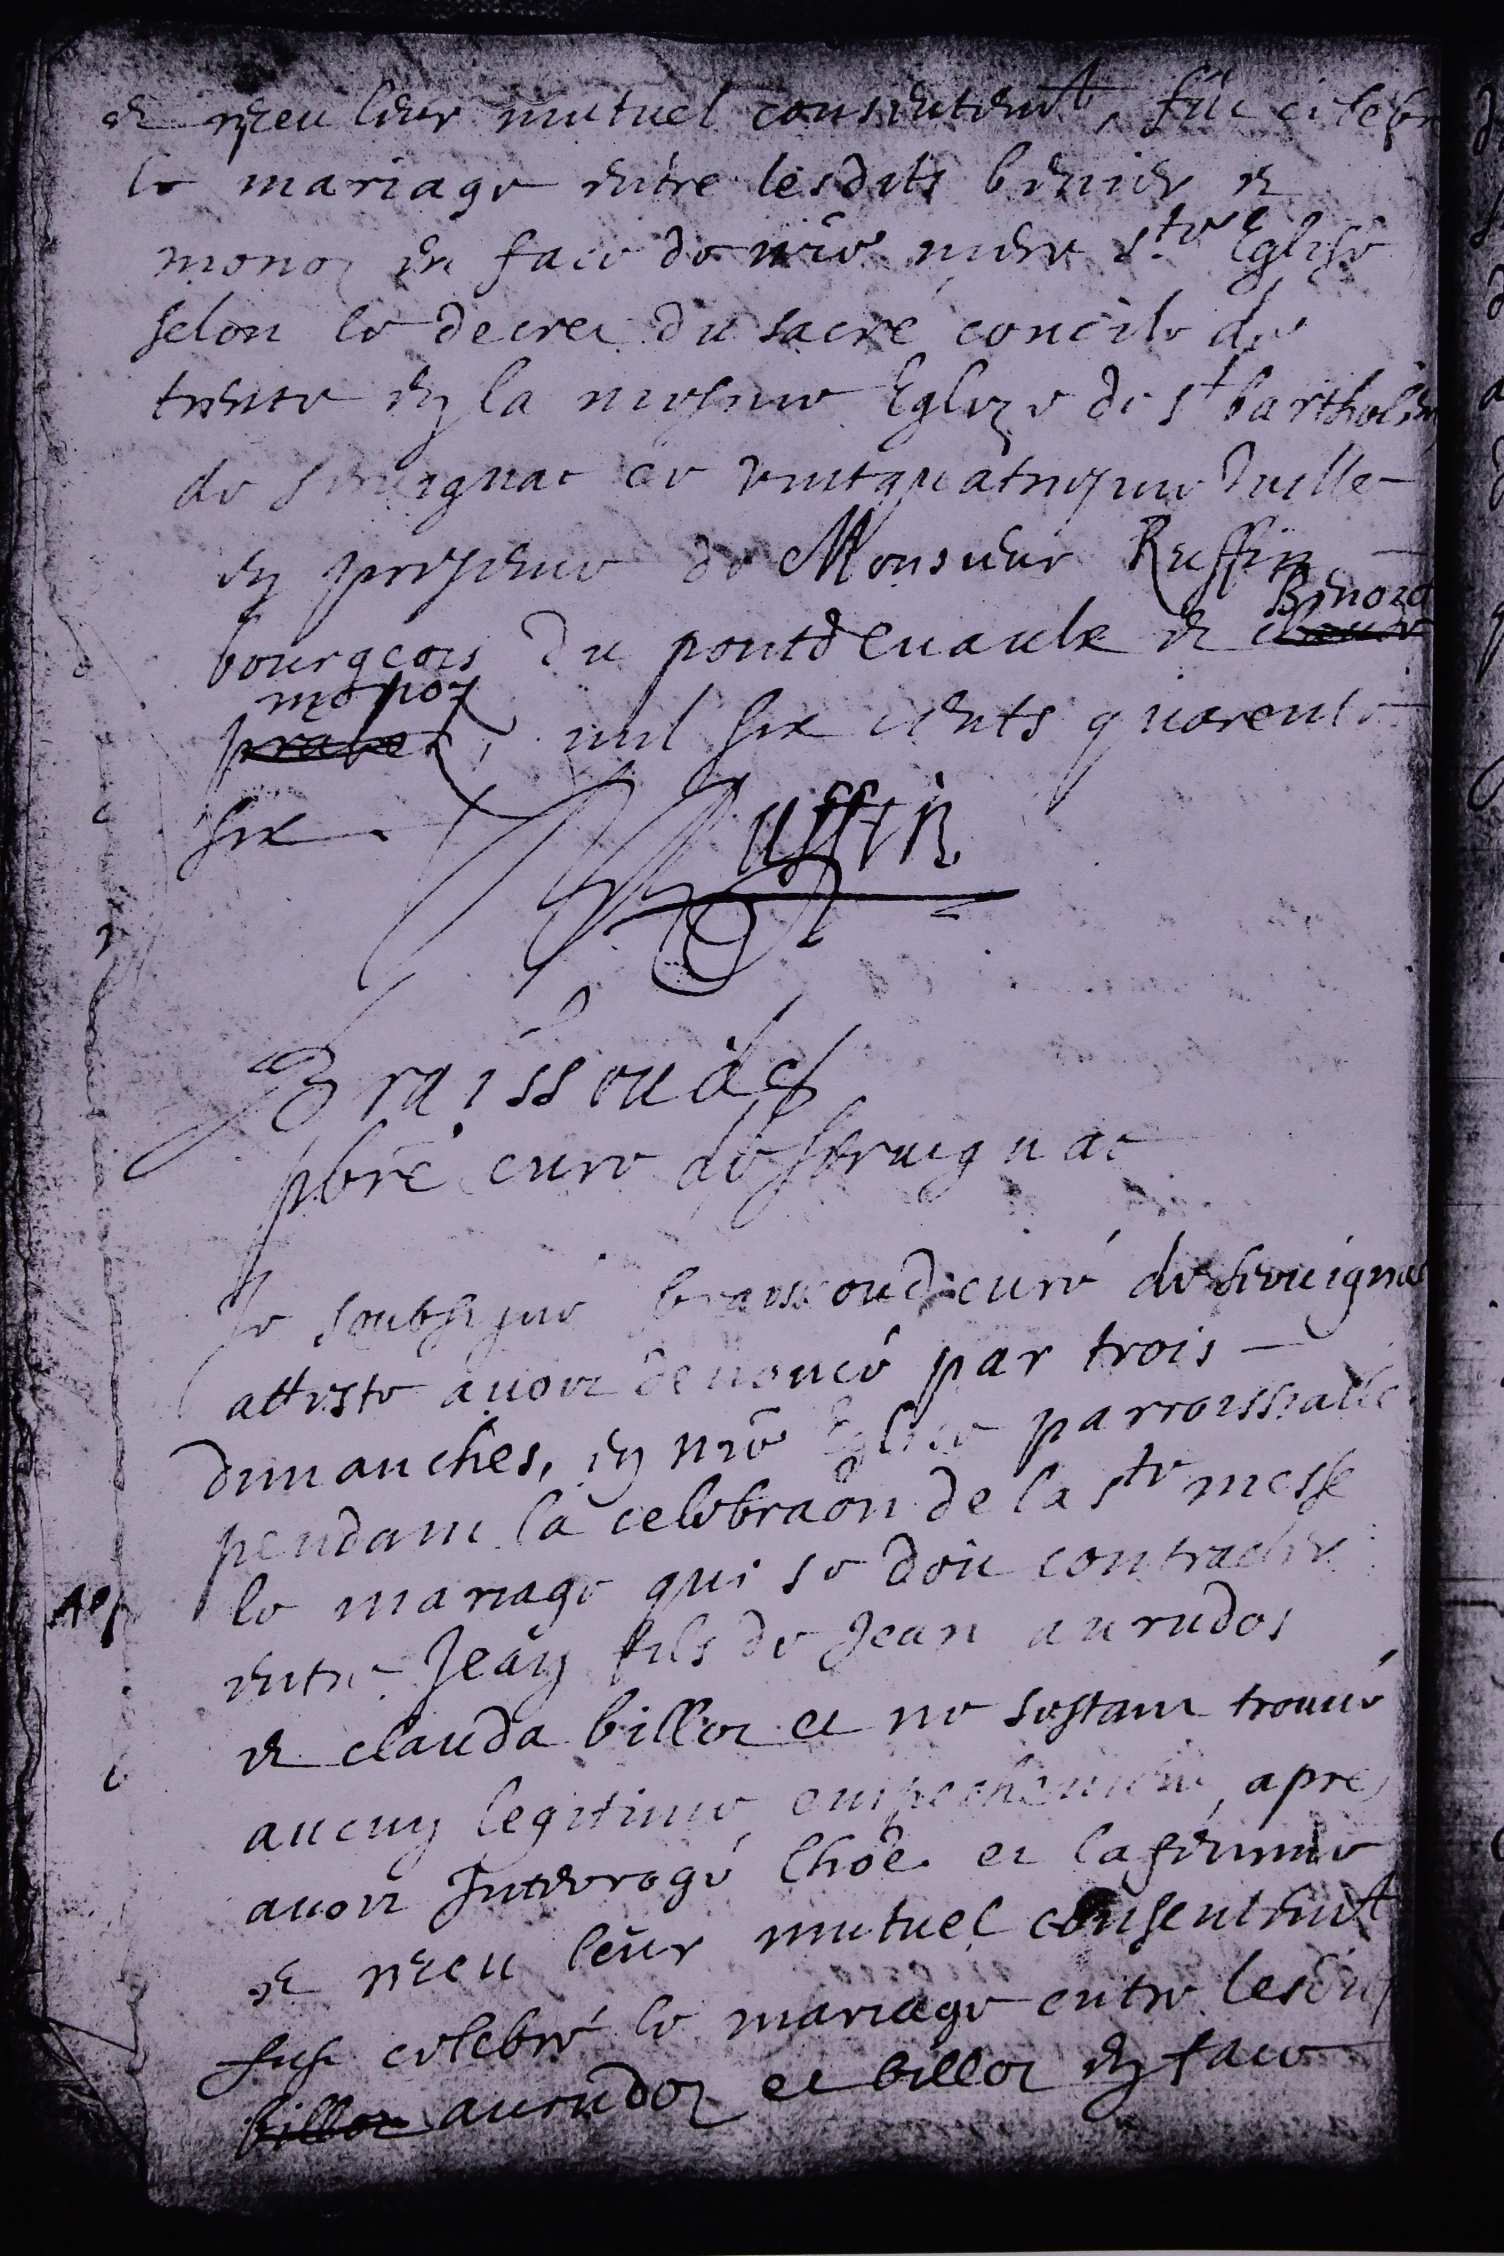 et receu leur mutuel consentemt, fut celebr
le mariage entre lesdits benier et
monoz en face de nre mere ste Eglise
selon le decret du sacré concile de
trente en la mesme Eglize de st bartholem
de seruignat ce vintquatriesme Juillet
en presence de Monsieur Ruffin
bourgeois du pontdeuaulx et Benoict
monoz, mil six cents quarente
six
Ruffin
Braissoud
pbre curé de seruignat
Je soubsigné braissoud curé de seruignat
atteste auoir denoncé par trois
dimanches, en nre Eglise parroissialle
pendant la celebraon de la ste messe
le mariage qui se doit contracter
entre Jean fils de Jean aurudos
et clauda billoz et ne sestant trouué
aucun legitime empechement, apres
auoir Interrogé lhoe et la femme
et receu leur mutuel consentemt
fust celebré le mariage entre lesdits
billoz auendoz et billoz en face